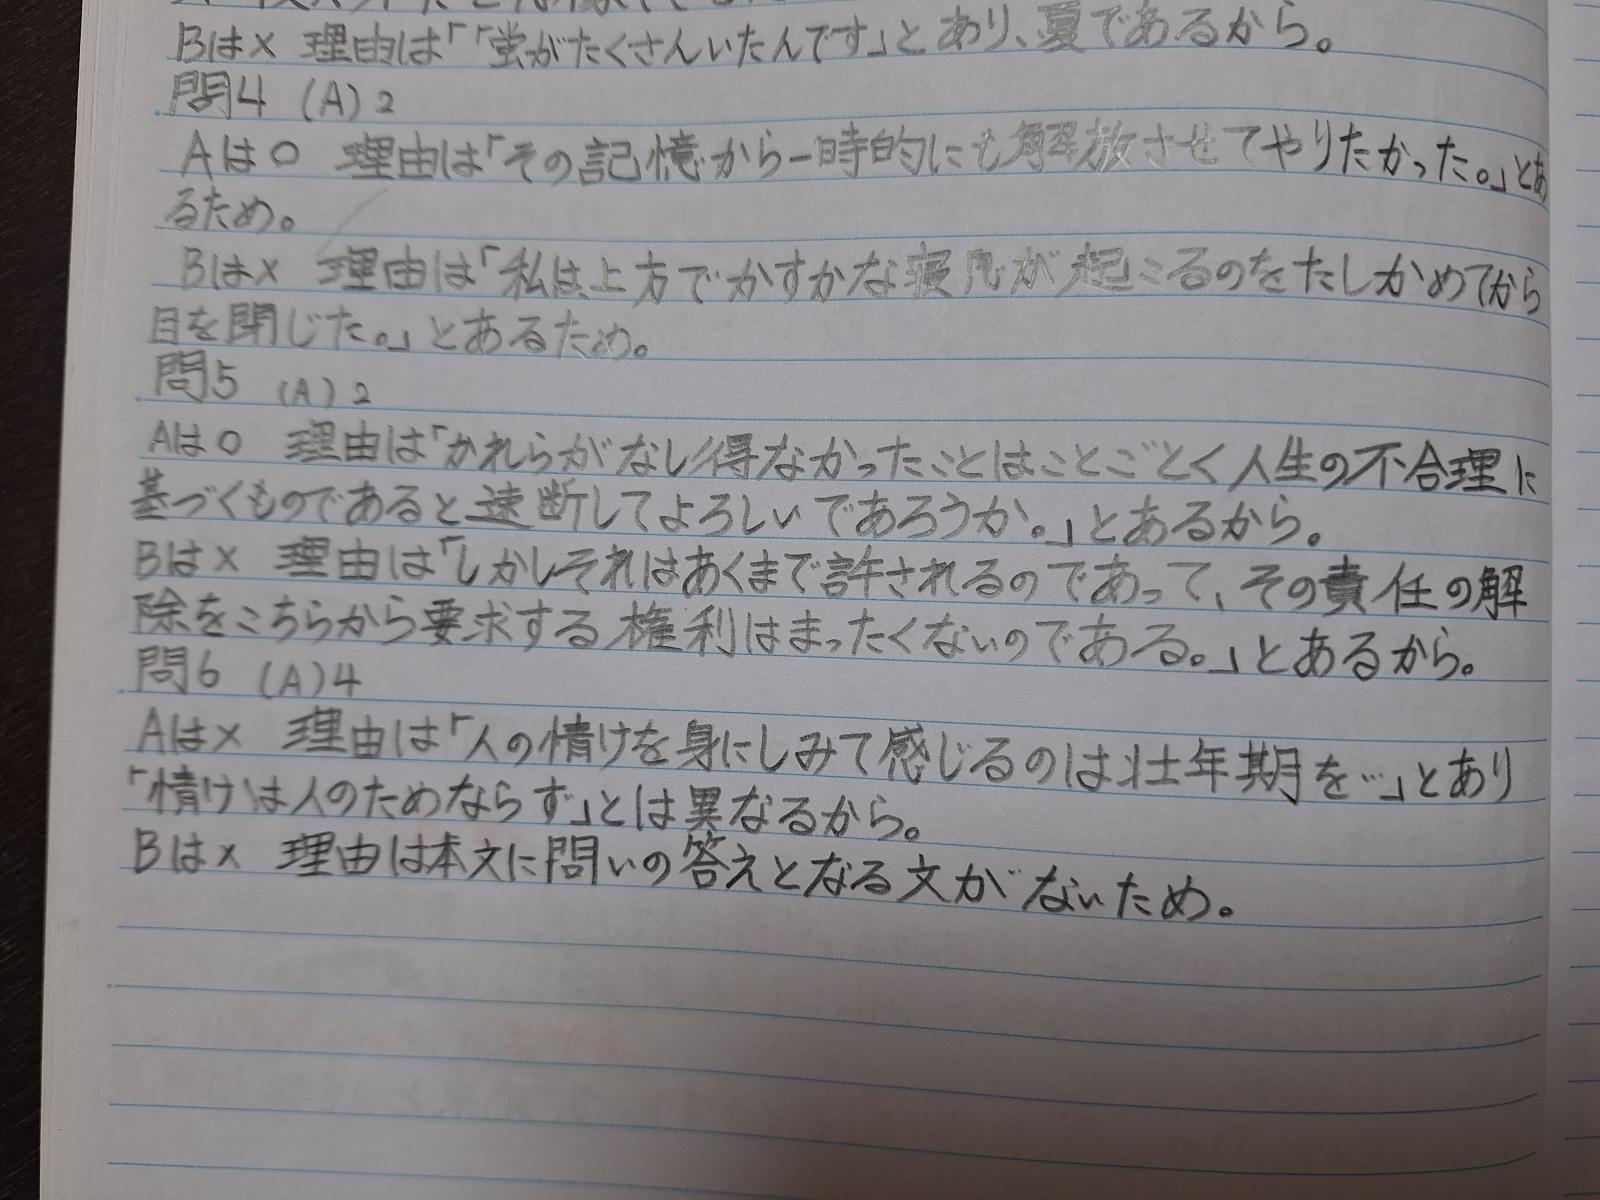 Bは× 理由は「「蛍がたくさんいたんです」とあり、夏であるから。
問4 (A) 2
Aは○ 理由は「その記憶から一時的にも解放させてやりたかった。」とあ
るため。
Bは× 理由は「私は上方でかすかな寝息が起こるのをたしかめてから
目を閉じた。」とあるため。
問5 (A) 2
Aは○ 理由は「かれらがなし得なかったことはことごとく人生の不合理に
基づくものであると速断してよろしいであろうか。」とあるから。
Bは× 理由は「しかしそれはあくまで許されるのであって、その責任の解
除をこちらから要求する権利はまったくないのである。」とあるから。
問6 (A) 4
Aは× 理由は「人の情けを身にしみて感じるのは壮年期を…」とあり
「情けは人のためならず」とは異なるから。
Bは× 理由は本文に問いの答えとなる文がないため。